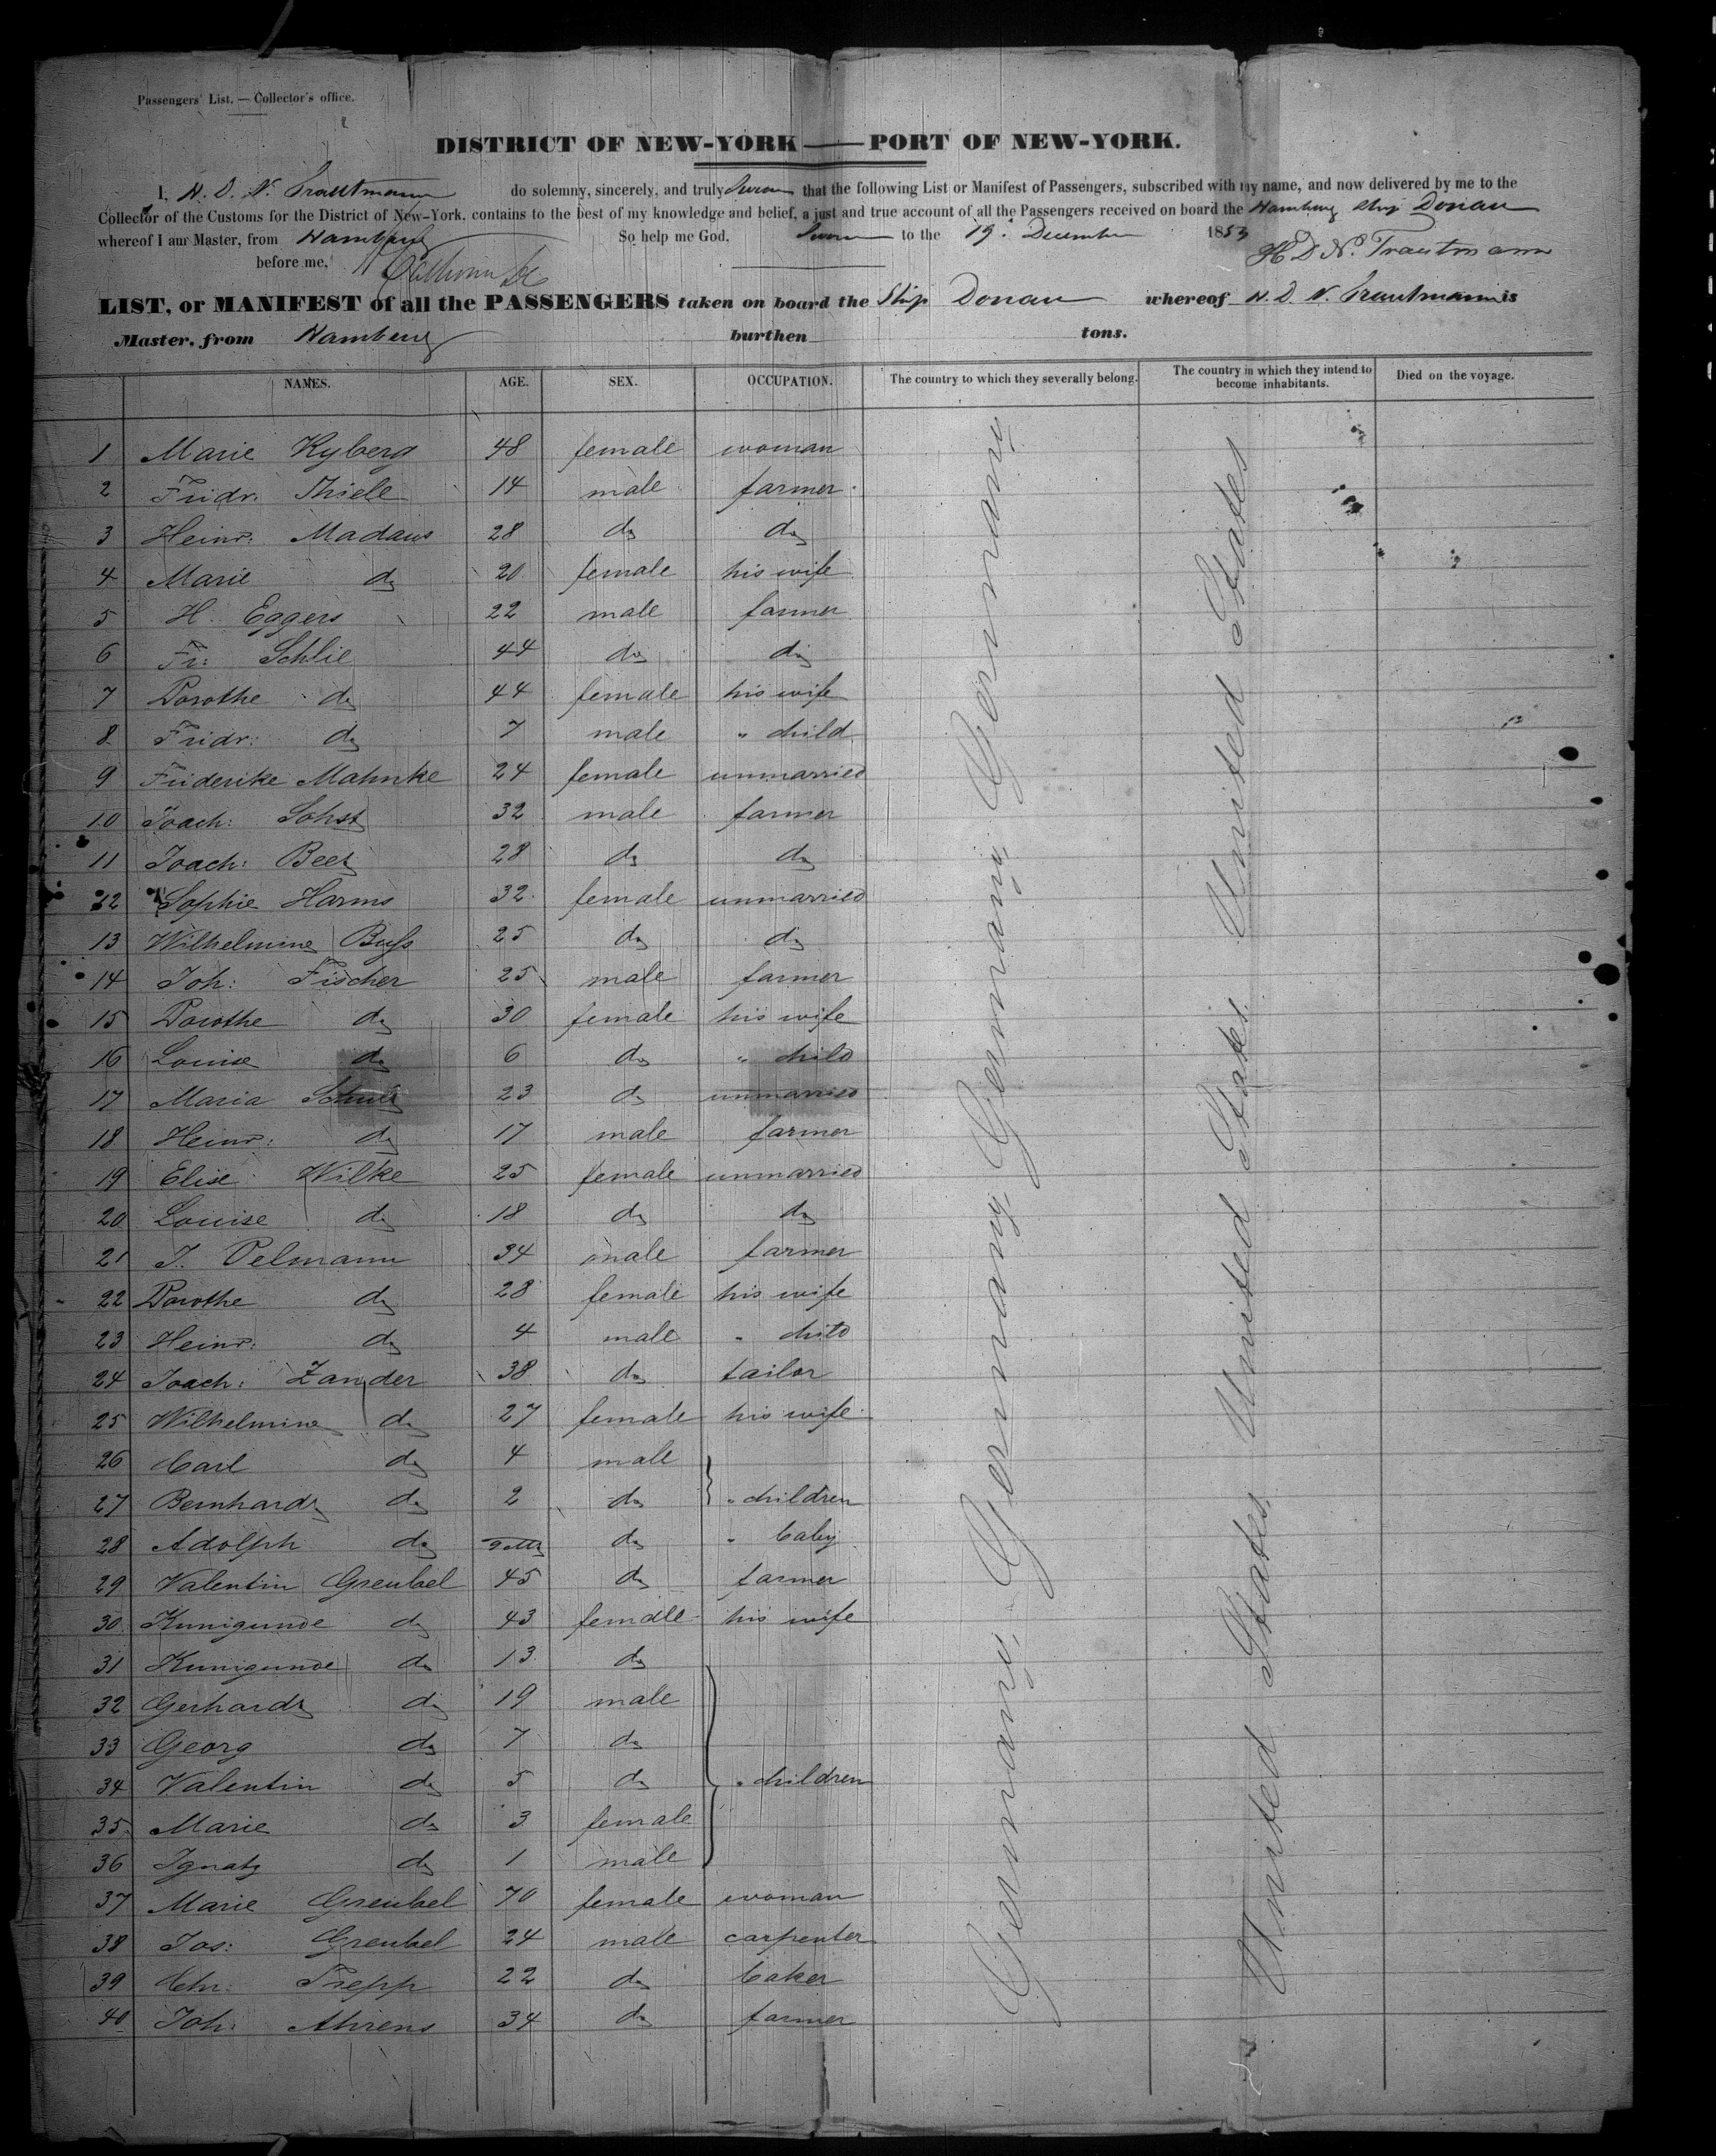 Passengers' List. — Collector's office.
DISTRICT OF NEW-YORK — PORT OF NEW-YORK.
I, H. D. N. Trautmann do solemny, sincerely, and truly Swear that the following List or Manifest of Passengers, subscribed with my name, and now delivered by me to the
Collector of the Customs for the District of New-York, contains to the best of my knowledge and belief, a just and true account of all the Passengers received on board the Hamburg Ship Donau
whereof I am Master, from Hamburg So help me God, Sworn to the 19. December 1853
before me, H D N. Trautmann
LIST, or MANIFEST of all the PASSENGERS taken on board the Ship Donau whereof H. D. N. Trautmann is
Master, from Hamburg burthen tons.
NAMES. AGE. SEX. OCCUPATION. The country to which they severally belong. The country in which they intend to become inhabitants. Died on the voyage.
1 Marie Kyberg 48 female woman
2 Fridr. Thiele 14 male farmer
3 Heinr: Madaus 28 do do
4 Marie do 20 female his wife
5 H. Eggers 22 male farmer
6 Fr: Schlie 44 do do
7 Dorothe do 44 female his wife
8 Fridr: do 7 male " child
9 Friderike Mahnke 24 female unmarried
10 Joach: Sohst 32 male farmer
11 Joach: Beet 28 do do
12 Sophie Harms 32 female unmarried
13 Wilhelmine Buss 25 do do
14 Joh: Fischer 25 male farmer
15 Dorothe do 30 female his wife
16 Louise do 6 do " child
17 Maria 23 do unmarried
18 Heinr: do 17 male farmer
19 Elise Wilke 25 female unmarried
20 Louise do 18 do do
21 J. Pelmann 34 male farmer
22 Dorothe do 28 female his wife
23 Heinr: do 4 male " child
24 Joach: Zander 38 do tailor
25 Wilhelmine do 27 female his wife
26 Carl do 4 male
27 Bernhard do 2 do " children
28 Adolph do do " baby
29 Valentin Greubel 45 do farmer
30 Kunigunde do 43 female his wife
31 Kunigunde do 13 do
32 Gerhard do 19 male
33 Georg do 7 do
34 Valentin do 5 do " children
35 Marie do 3 female
36 Ignatz do 1 male
37 Marie Greubel 70 female woman
38 Jos: Greubel 24 male carpenter
39 Chr: Trepp 22 do baker
40 Joh: Ahrens 34 do farmer
Germany, Germany, Germany, Germany, Germany
United States United States United States United States